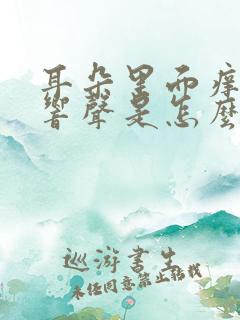 耳朵里面痒
響聲是怎麼
巡游書生
未经同意禁止转载